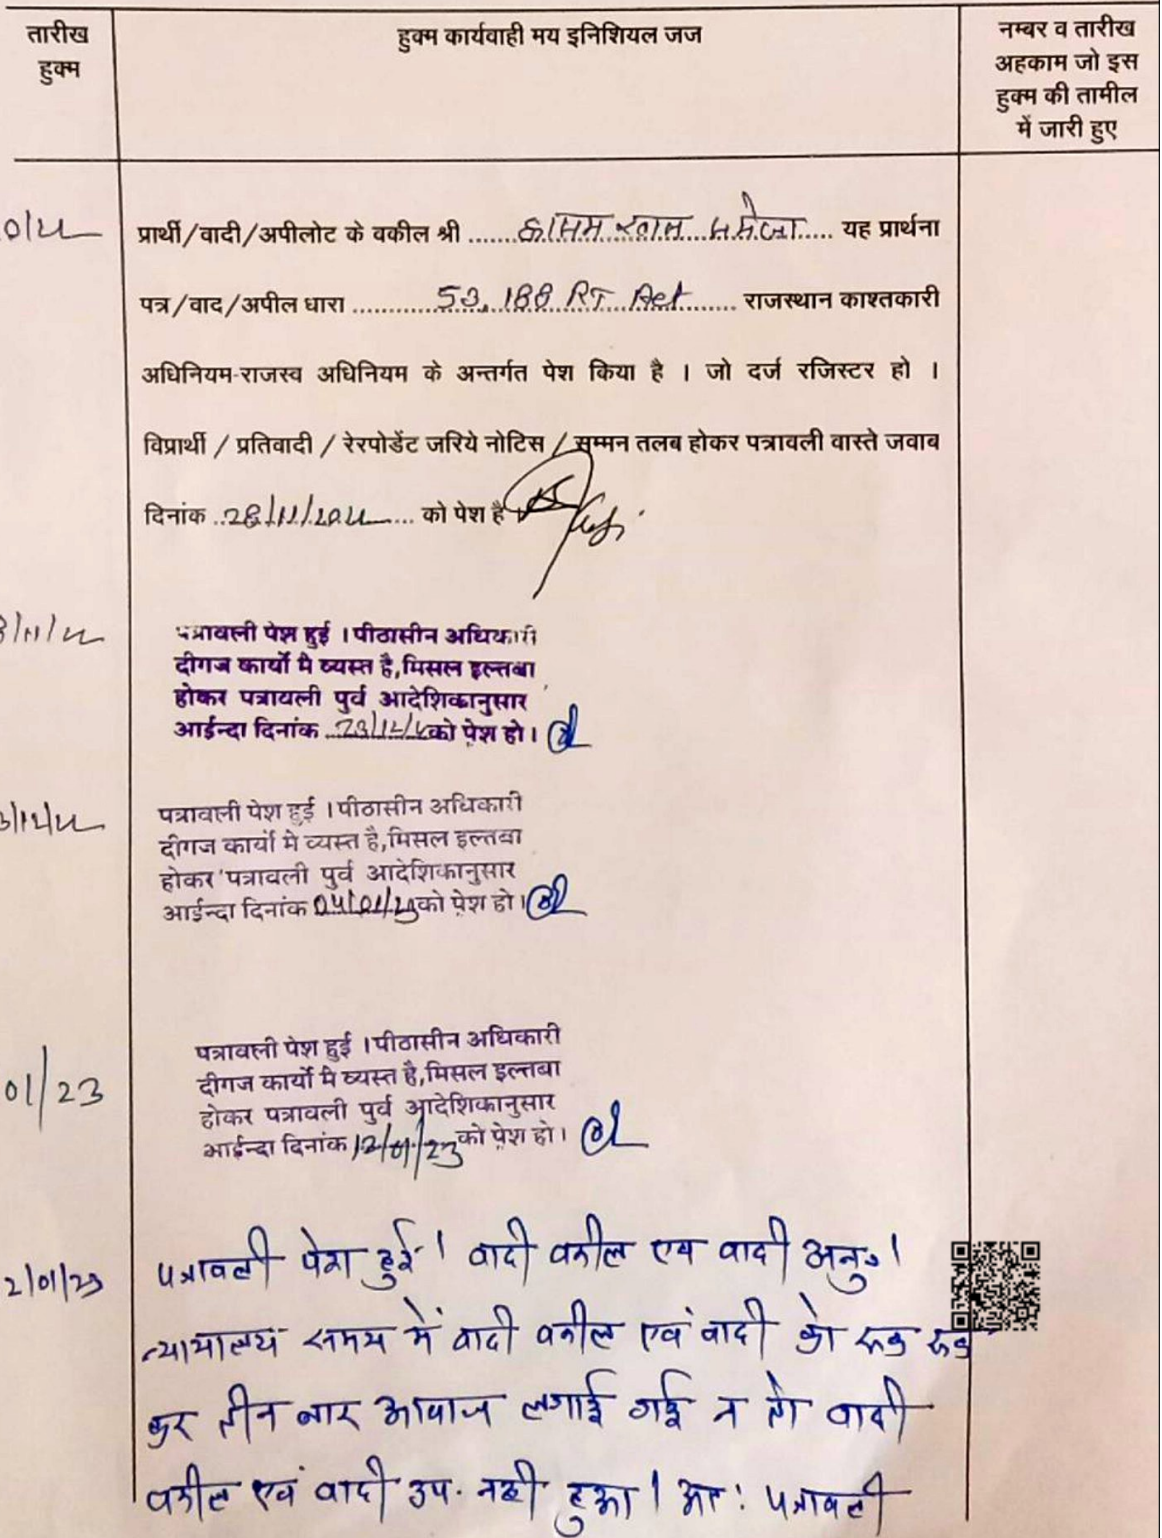 तारीख
हुक्म
हुक्म कार्यवाही मय इनिशियल जज
नम्बर व तारीख
अहकाम जो इस
हुक्म की तामील
में जारी हुए
प्रार्थी/वादी/अपीलोट के वकील श्री ....... कासम खान ..... यह प्रार्थना
पत्र/वाद/अपील धारा ........ 53, 188 RT Act ........ राजस्थान काश्तकारी
अधिनियम-राजस्व अधिनियम के अन्तर्गत पेश किया है । जो दर्ज रजिस्टर हो ।
विप्रार्थी / प्रतिवादी / रेरपोडेंट जरिये नोटिस / सम्मन तलब होकर पत्रावली वास्ते जवाब
दिनांक .. 28/11/2022 .... को पेश है
/11/22
पत्रावली पेश हुई । पीठासीन अधिकारी
दीगज कार्यो मे व्यस्त है,मिसल इल्तबा
होकर पत्रावली पुर्व आदेशिकानुसार
आईन्दा दिनांक को पेश हो ।
/12/22
पत्रावली पेश हुई । पीठासीन अधिकारी
दीगज कार्यो मे व्यस्त है,मिसल इल्तबा
होकर पत्रावली पुर्व आदेशिकानुसार
आईन्दा दिनांक 04/01/23 को पेश हो ।
01/23
पत्रावली पेश हुई । पीठासीन अधिकारी
दीगज कार्यो मे व्यस्त है,मिसल इल्तबा
होकर पत्रावली पुर्व आदेशिकानुसार
आईन्दा दिनांक 12/01/23 को पेश हो ।
2/01/23
पत्रावली पेश हुई । वादी वकील एव वादी अनु० ।
न्यायालय समय में वादी वकील एवं वादी को रूक रूक
कर तीन बार आवाज लगाई गई न तो वादी
वकील एवं वादी उप. नही हुआ । अत: पत्रावली